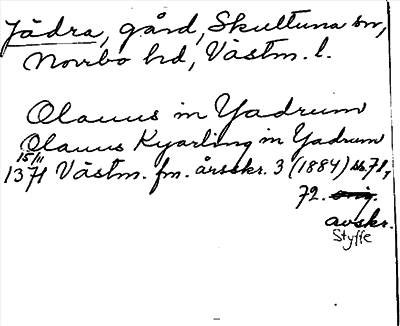 Jädra, gård, Skultuna sn,
Norrbo hd, Västm. l.
Olauus in Yadrum
Olauus Kyarling in Yadrum
15/11
1371 Västm. fm. årsskr. 3 (1884) ss. 71,
72.
avskr.
Styffe